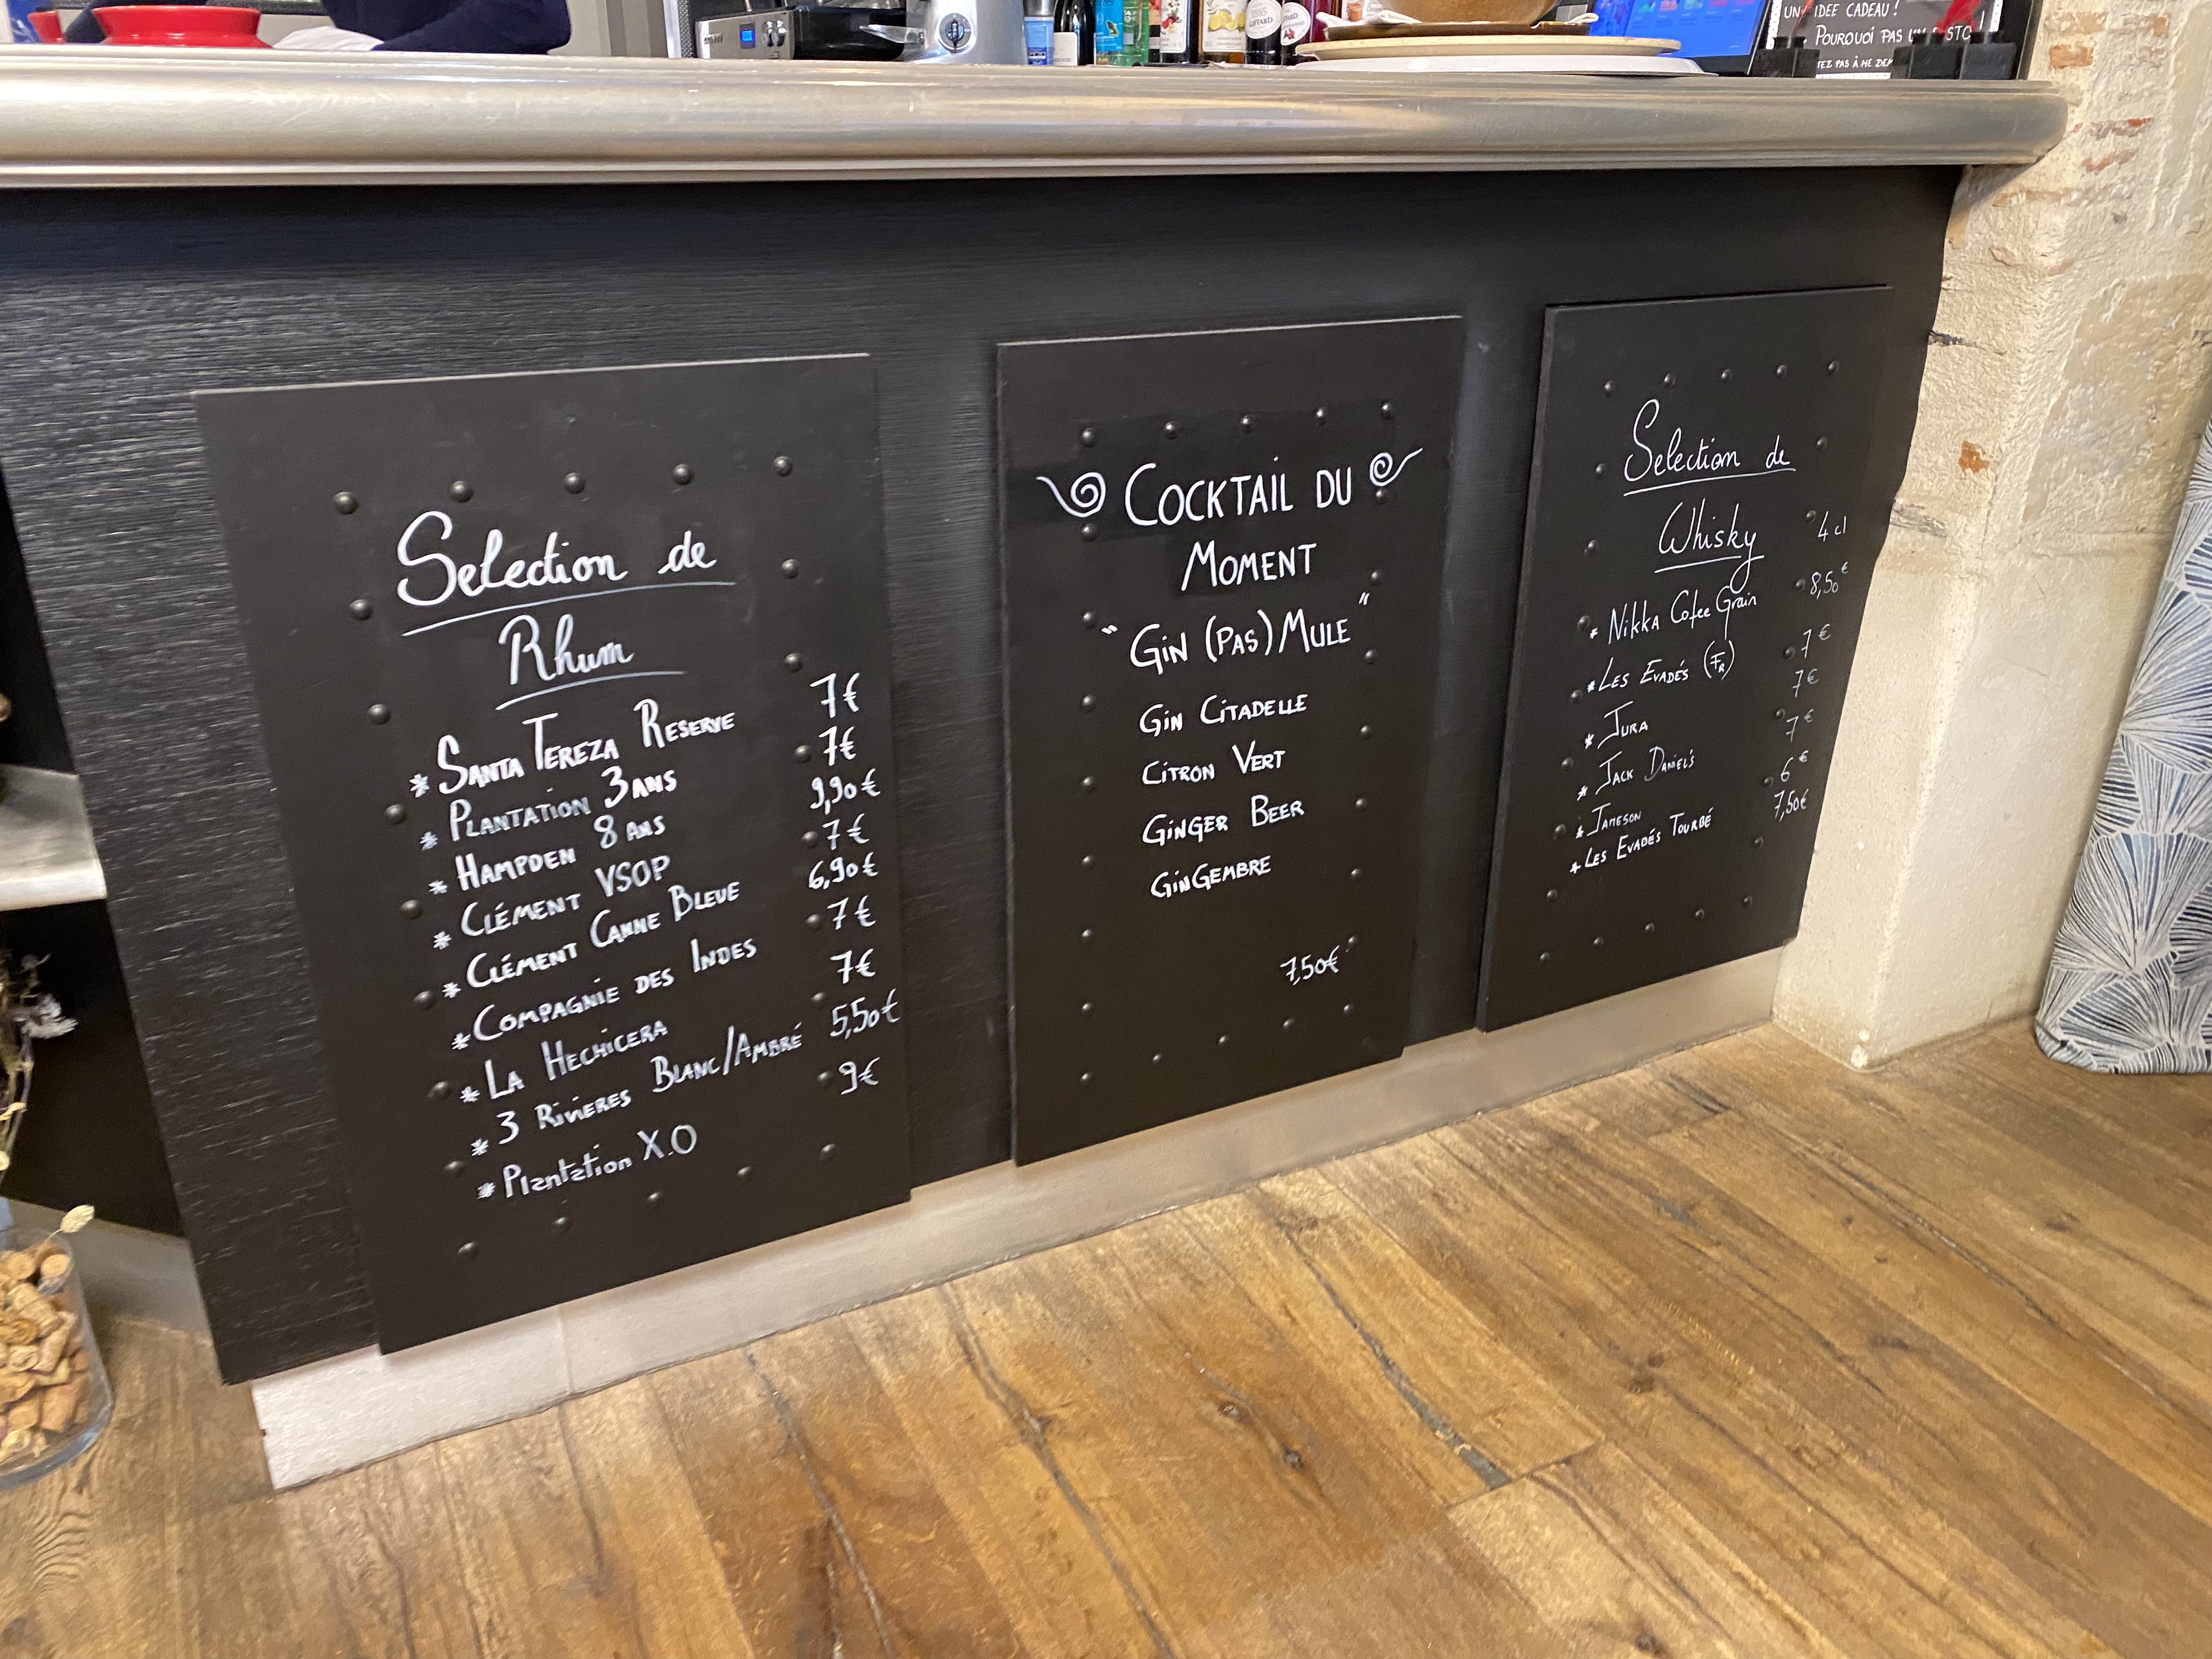 UNE IDEE CADEAU !
POURQUOI PAS UN
TEZ PAS À ME DEM
GIFFARD
Selection de
Rhum
* SANTA TEREZA RESERVE 7€
* PLANTATION 3 ANS 7€
* HAMPDEN 8 ANS 9,90€
* CLÉMENT VSOP 7€
* CLÉMENT CANNE BLEUE 6,90€
* COMPAGNIE DES INDES 7€
* LA HECHICERA 7€
* 3 RIVIERES BLANC/AMBRÉ 5,50€
* Plantation X.O 9€
COCKTAIL DU
MOMENT
"GIN (PAS) MULE"
GIN CITADELLE
CITRON VERT
GINGER BEER
GINGEMBRE
7,50€
Selection de
Whisky 4 cl
* Nikka Cofee Grain 8,50€
* LES EVADÉS (FR) 7€
* JURA 7€
* JACK DANIEL'S 7€
* JAMESON 6€
* LES EVADÉS TOURBÉ 7,50€